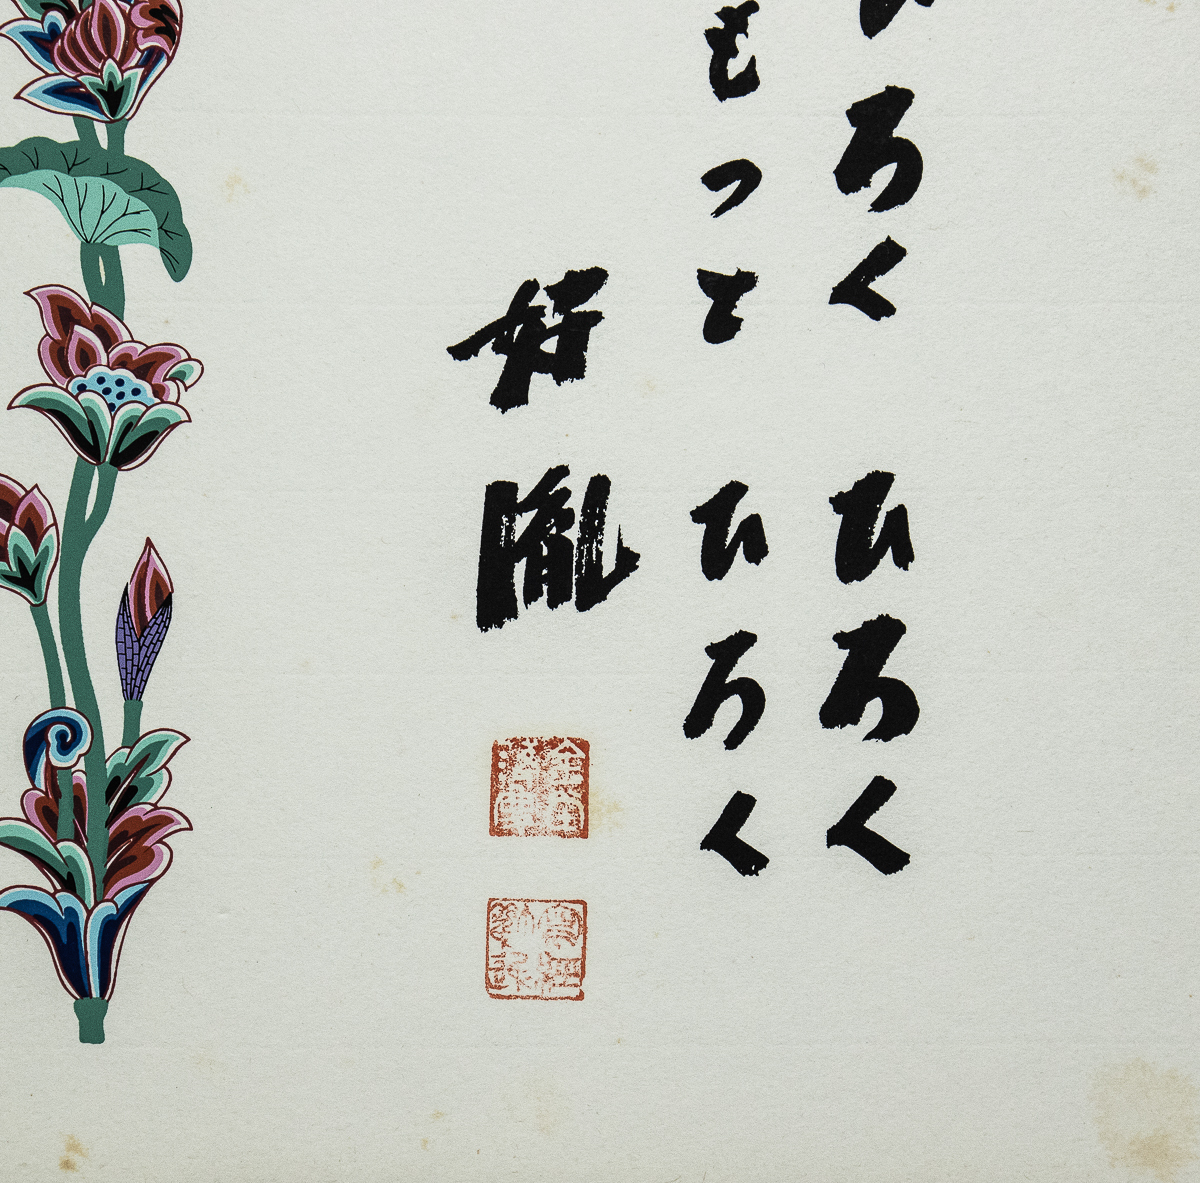 ひろく ひろく
もっと ひろく
好胤